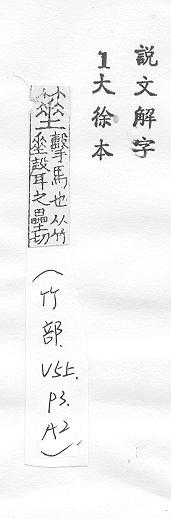 説文解字
1大徐本
箠擊馬也从竹
垂聲之壘切
(竹部.V5上.P3.A2)